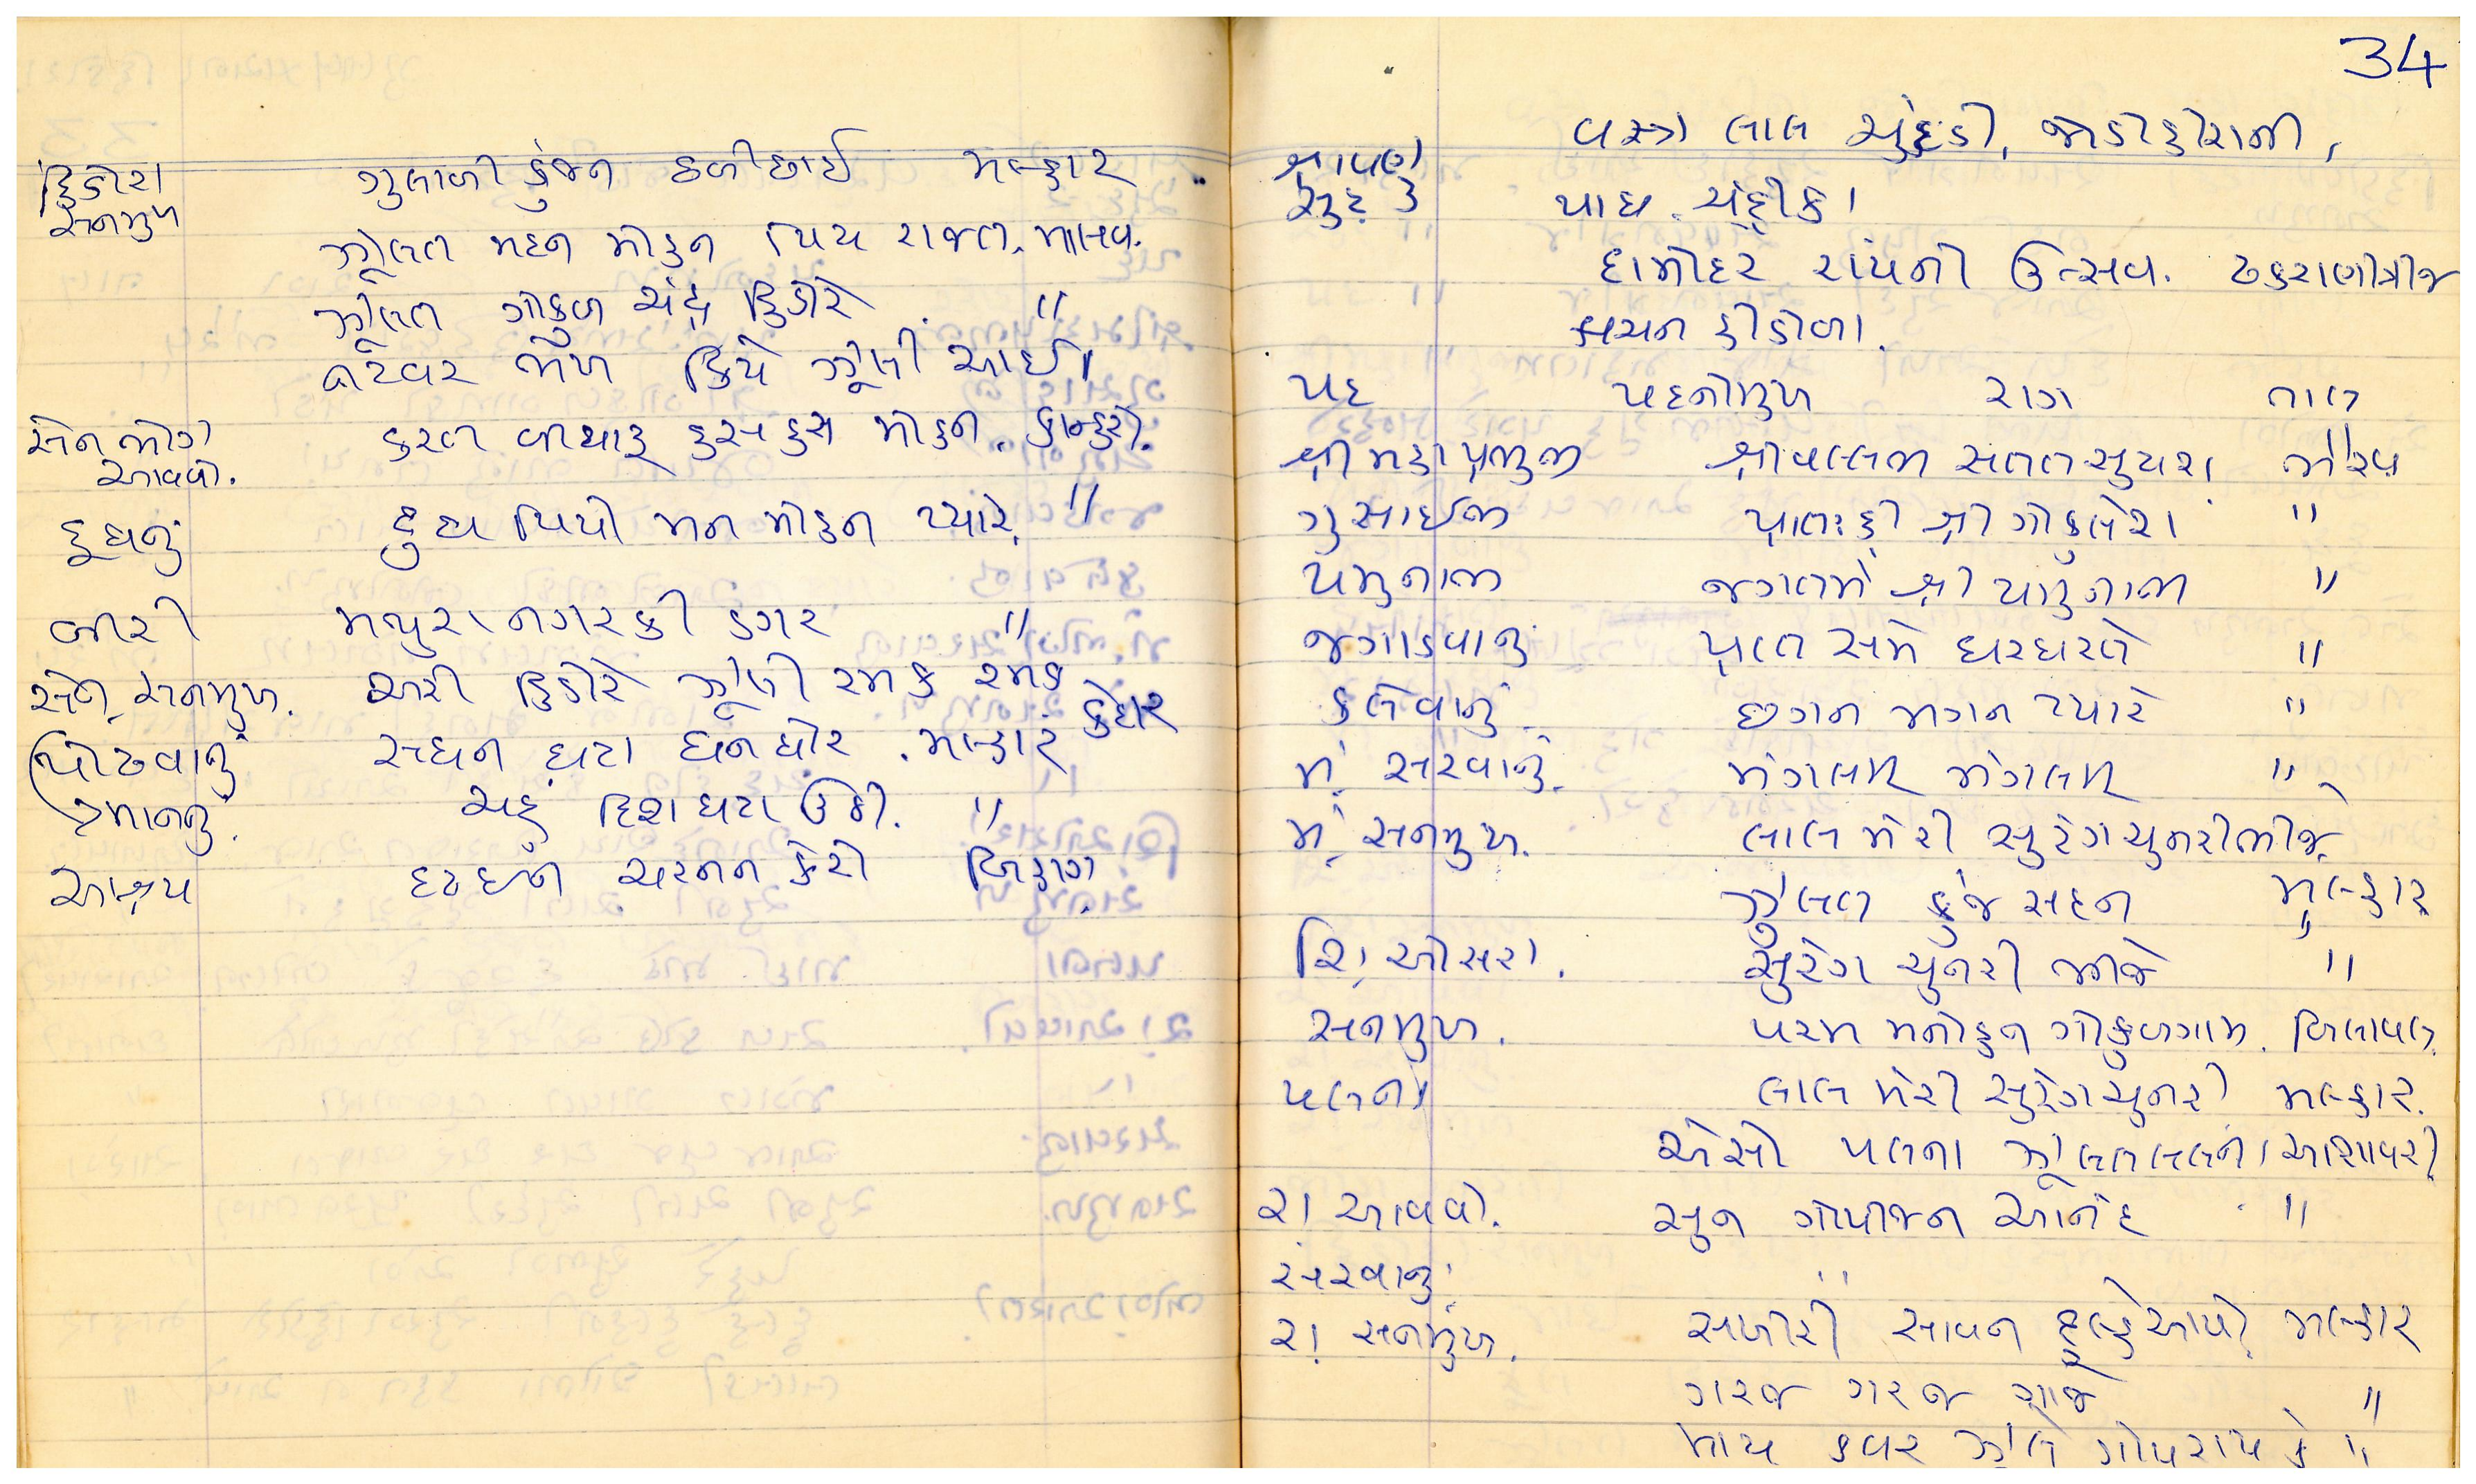 હિંડોરા ગુલાબી કુંજન છબી છાઈ મલ્હાર
સનમુખ
ઝુલત મદન મોહન પિય રાજત. માલવ.
ઝુલત ગોકુળ ચંદ્ર હિંડોરે. "
નટવર ભેખ કિયે ઝૂલી આઈ
સેન ભોગ કરત બીયારૂ હસહસ મોહન. કાન્હરો.
આવવો.
દૂધનું દુધ પિયો મન મોહન પ્યારે. "
બીરી મથુરા નગરકી ડગર "
સેન. સનમુખ. અરી હિંડોરે ઝૂલી રમક રમક કેદાર
પોઢવાનું સઘન ઘટા ઘનઘોર. મલ્હાર
માનનું. ચહું દિશ ઘટા ઉઠી. "
આશ્રય દ્રઢ ઈન ચરનન કેરો બિહાગ.
34
વસ્ત્રો લાલ ચુંદડી, જોડીહીરાની,
શ્રાવણ
સુદ ૩ પાઘ. ચંદ્રીકા
દામોદર રાયનો ઉત્સવ. ઠકરાણીત્રીજ
કાચના હીંડોળા.
પદ પદનોમુખ રાગ તાલ
શ્રી મહાપ્રભુજી શ્રીવલ્લભ સંતત સુયશ. ભૈરવ
ગુસાઈજી પ્રાતઃહી શ્રી ગોકુલેશ "
યમુનાજી જગતમેં શ્રી યમુનાજી "
જગાડવાનું પ્રાત સમે ઘરઘરતે "
કલેવાનું છગન મગન પ્યારે "
મં. સરવાનું. મંગલમ્ મંગલમ્ "
મં. સનમુખ. લાલ મેરી સુરંગ ચુનરીભીંજે.
ઝુલત કુંજ સદન મલ્હાર
શ્રિં. ઓસરા. સુરંગ ચુનરી ભીજે "
સનમુખ. પરમ મનોહર ગોકુળગામ. બિલાવલ.
પલના લાલ મેરી સુરંગચુનરી મલ્હાર.
એસો પલના ઝૂલતલલના આશાવરી
રા. આવવો. સુન ગોપીજન આનંદ "
સરવાનું. "
રા. સનમુખ. સખીરી સાવન દુલ્હેઆયો. મલ્હાર
ગરજ ગરજ ગાજે "
માય કવર ઝૂલે ગોપરાય કે "